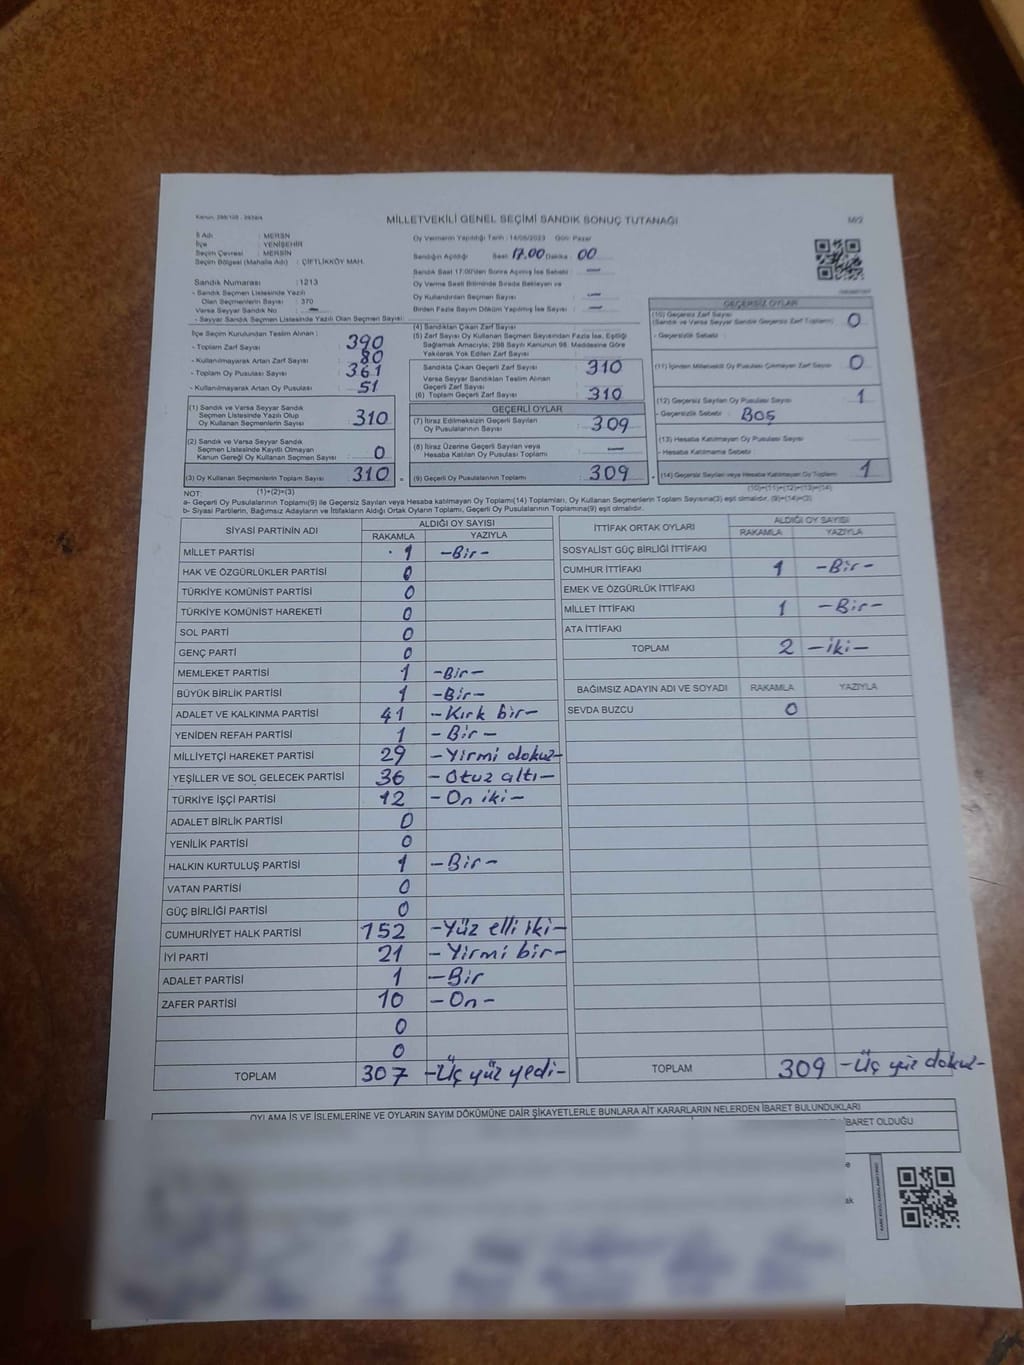 MİLLETVEKİLİ GENEL SEÇİMİ SANDIK SONUÇ TUTANAĞI
İl Adı : MERSİN
İlçe : YENİŞEHİR
Seçim Çevresi : MERSİN
Seçim Bölgesi (Mahalle Adı) : ÇİFTLİKKÖY MAH.
Oy Vermenin Yapıldığı Tarih : 14/05/2023 Gün: Pazar
Sandığın Açıldığı Saat 17.00 Dakika : 00
Sandık Saat 17:00'den Sonra Açılmış İse Sebebi : —
Oy Verme Saati Bitiminde Sırada Bekleyen ve
Oy Kullandırılan Seçmen Sayısı : —
Birden Fazla Sayım Dökümü Yapılmış İse Sayısı : —
Sandık Numarası : 1213
- Sandık Seçmen Listesinde Yazılı
Olan Seçmenlerin Sayısı : 370
Varsa Seyyar Sandık No : —
- Seyyar Sandık Seçmen Listesinde Yazılı Olan Seçmen Sayısı :
İlçe Seçim Kurulundan Teslim Alınan :
- Toplam Zarf Sayısı : 390
- Kullanılmayarak Artan Zarf Sayısı : 80
- Toplam Oy Pusulası Sayısı : 361
- Kullanılmayarak Artan Oy Pusulası : 51
(1) Sandık ve Varsa Seyyar Sandık
Seçmen Listesinde Yazılı Olup
Oy Kullanan Seçmen Sayısı : 310
(2) Sandık ve Varsa Seyyar Sandık
Seçmen Listesinde Kayıtlı Olmayan
Kanun Gereği Oy Kullanan Seçmen Sayısı : 0
(3) Oy Kullanan Seçmenlerin Toplam Sayısı : 310
(1)+(2)=(3)
(4) Sandıktan Çıkan Zarf Sayısı :
(5) Zarf Sayısı Oy Kullanan Seçmen Sayısından Fazla İse, Eşitliği
Sağlamak Amacıyla; 298 Sayılı Kanunun 98. Maddesine Göre
Yakılarak Yok Edilen Zarf Sayısı :
Sandıkta Çıkan Geçerli Zarf Sayısı : 310
Varsa Seyyar Sandıktan Teslim Alınan
Geçerli Zarf Sayısı :
(6) Toplam Geçerli Zarf Sayısı : 310
GEÇERLİ OYLAR
(7) İtiraz Edilmeksizin Geçerli Sayılan
Oy Pusulalarının Sayısı : 309
(8) İtiraz Üzerine Geçerli Sayılan veya
Hesaba Katılan Oy Pusulası Toplamı : —
(9) Geçerli Oy Pusulalarının Toplamı : 309
GEÇERSİZ OYLAR
(10) Geçersiz Zarf Sayısı
(Sandık ve Varsa Seyyar Sandık Geçersiz Zarf Toplamı) : 0
- Geçersizlik Sebebi :
(11) İçinden Milletvekili Oy Pusulası Çıkmayan Zarf Sayısı : 0
(12) Geçersiz Sayılan Oy Pusulası Sayısı : 1
- Geçersizlik Sebebi : Boş
(13) Hesaba Katılmayan Oy Pusulası Sayısı :
- Hesaba Katılmama Sebebi :
(14) Geçersiz Sayılan veya Hesaba Katılmayan Oy Toplamı : 1
(10)+(11)+(12)+(13)=(14)
NOT:
a- Geçerli Oy Pusulalarının Toplamı(9) ile Geçersiz Sayılan veya Hesaba katılmayan Oy Toplamı(14) Toplamları, Oy Kullanan Seçmenlerin Toplam Sayısına(3) eşit olmalıdır. (9)+(14)=(3)
b- Siyasi Partilerin, Bağımsız Adayların ve İttifakların Aldığı Ortak Oyların Toplamı, Geçerli Oy Pusulalarının Toplamına(9) eşit olmalıdır.
SİYASİ PARTİNİN ADI ALDIĞI OY SAYISI
RAKAMLA YAZIYLA
MİLLET PARTİSİ 1 -Bir-
HAK VE ÖZGÜRLÜKLER PARTİSİ 0
TÜRKİYE KOMÜNİST PARTİSİ 0
TÜRKİYE KOMÜNİST HAREKETİ 0
SOL PARTİ 0
GENÇ PARTİ 0
MEMLEKET PARTİSİ 1 -Bir-
BÜYÜK BİRLİK PARTİSİ 1 -Bir-
ADALET VE KALKINMA PARTİSİ 41 -Kırk bir-
YENİDEN REFAH PARTİSİ 1 -Bir-
MİLLİYETÇİ HAREKET PARTİSİ 29 -Yirmi dokuz-
YEŞİLLER VE SOL GELECEK PARTİSİ 36 -Otuz altı-
TÜRKİYE İŞÇİ PARTİSİ 12 -On iki-
ADALET BİRLİK PARTİSİ 0
YENİLİK PARTİSİ 0
HALKIN KURTULUŞ PARTİSİ 1 -Bir-
VATAN PARTİSİ 0
GÜÇ BİRLİĞİ PARTİSİ 0
CUMHURİYET HALK PARTİSİ 152 -Yüz elli iki-
İYİ PARTİ 21 -Yirmi bir-
ADALET PARTİSİ 1 -Bir
ZAFER PARTİSİ 10 -On-
0
0
TOPLAM 307 -Üç yüz yedi-
İTTİFAK ORTAK OYLARI ALDIĞI OY SAYISI
RAKAMLA YAZIYLA
SOSYALİST GÜÇ BİRLİĞİ İTTİFAKI
CUMHUR İTTİFAKI 1 -Bir-
EMEK VE ÖZGÜRLÜK İTTİFAKI
MİLLET İTTİFAKI 1 -Bir-
ATA İTTİFAKI
TOPLAM 2 -iki-
BAĞIMSIZ ADAYIN ADI VE SOYADI RAKAMLA YAZIYLA
SEVDA BUZCU 0
TOPLAM 309 -Üç yüz dokuz-
OYLAMA İŞ VE İŞLEMLERİNE VE OYLARIN SAYIM DÖKÜMÜNE DAİR ŞİKAYETLERLE BUNLARA AİT KARARLARIN NELERDEN İBARET BULUNDUKLARI
İBARET OLDUĞU